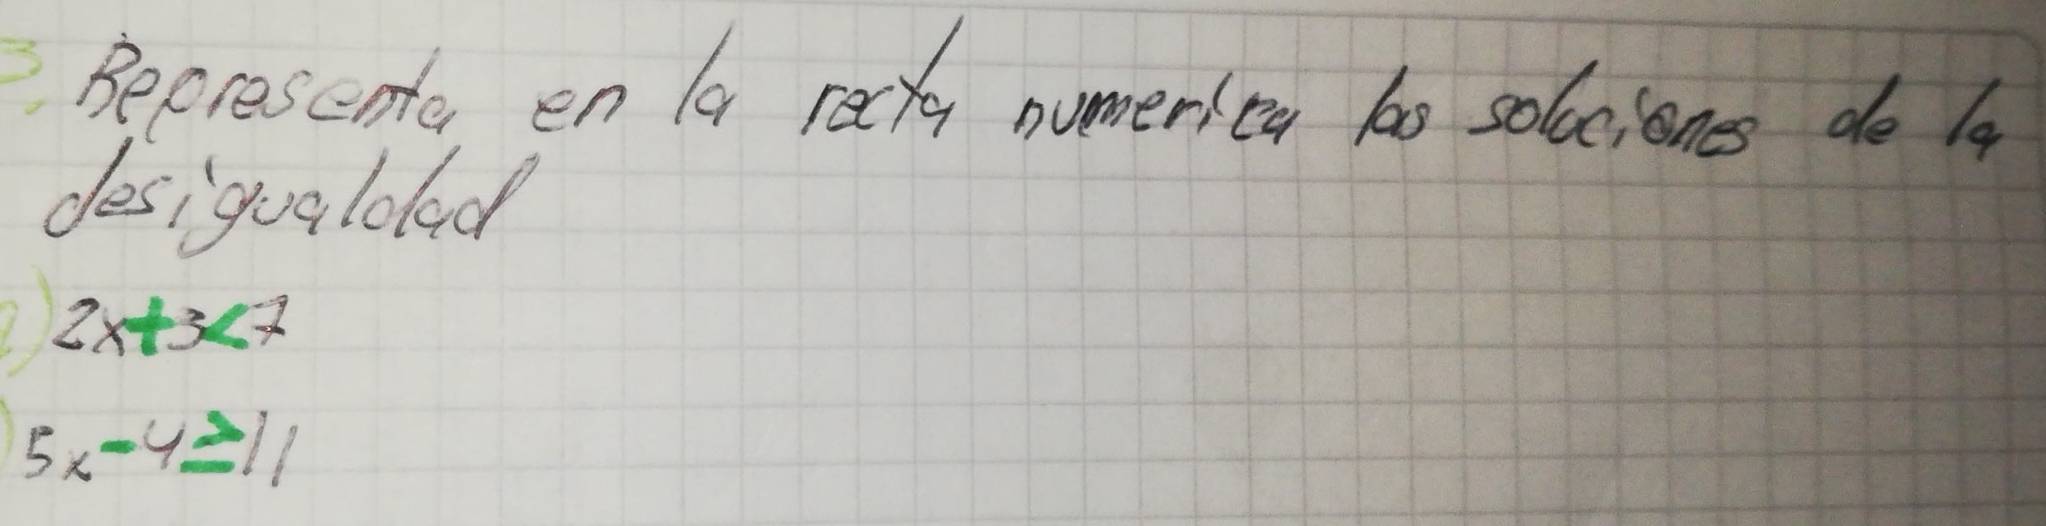 3. Representa en la recta numerica las soluciones de la
desigualdad
a) 2x+3<7
) 5x-4≥11